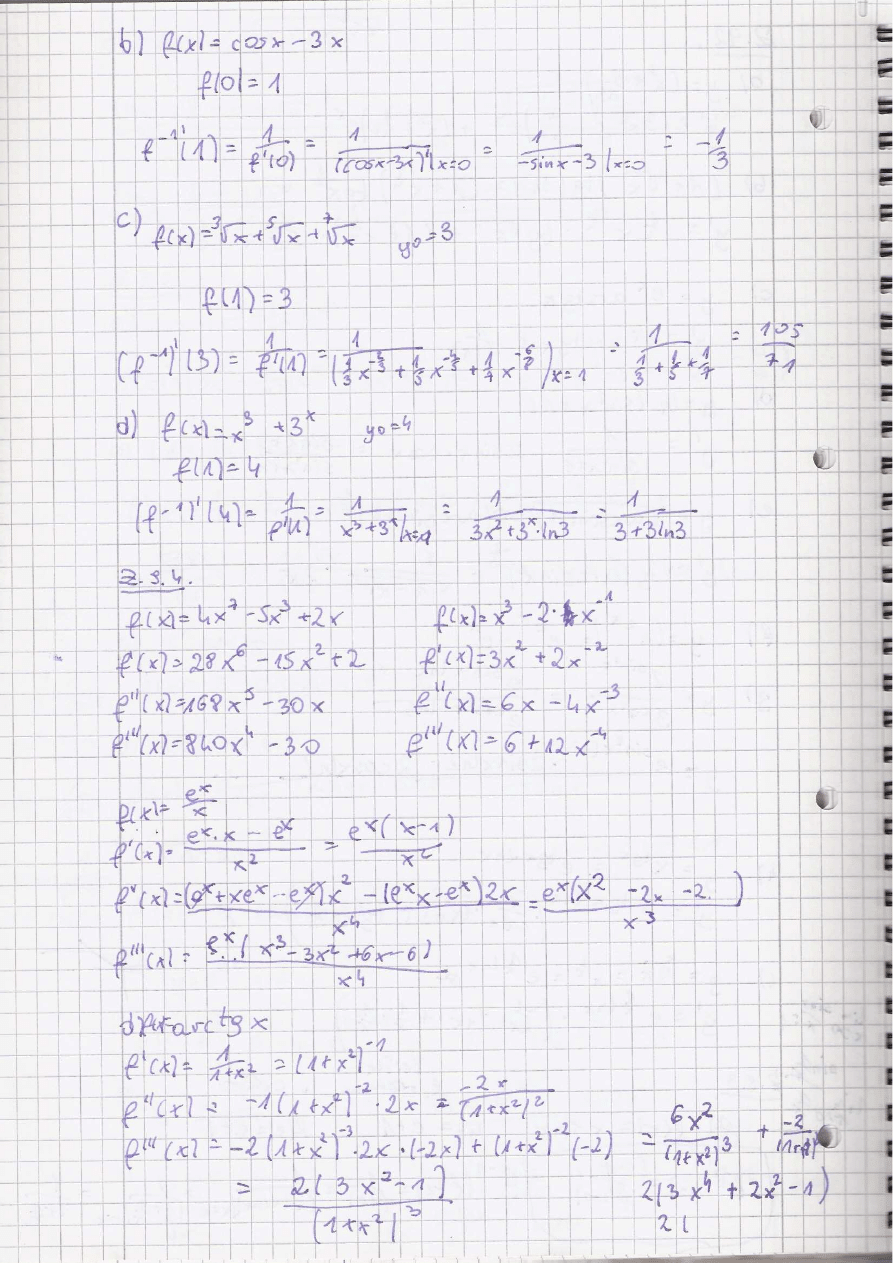 b) f(x) = cosx - 3x
f(0) = 1
f⁻¹'(1) = 1/f'(0) = 1/(cosx-3x)'|x=0 = 1/-sinx-3|x=0 = -1/3
c) f(x) = ³√x + ⁵√x + ⁷√x   y0 = 3
f(1) = 3
(f⁻¹)'(3) = 1/f'(1) = 1/(1/3 x^-2/3 + 1/5 x^-4/5 + 1/7 x^-6/7)x=1 = 1/(1/3 + 1/5 + 1/7) = 105/71
d) f(x) = x³ + 3ˣ   y0 = 4
f(1) = 4
(f⁻¹)'(4) = 1/f'(1) = 1/x³+3ˣ|x=1 = 1/3x²+3ˣ·ln3 = 1/3+3ln3
Z.9.4.
f(x) = 4x⁷ - 5x³ + 2x   f(x) = x³ - 2·x⁻¹
f'(x) = 28x⁶ - 15x² + 2   f'(x) = 3x² + 2x⁻²
f''(x) = 168x⁵ - 30x   f''(x) = 6x - 4x⁻³
f'''(x) = 840x⁴ - 30   f'''(x) = 6 + 12x⁻⁴
f(x) = eˣ/x
f'(x) = eˣ·x - eˣ/x² = eˣ(x-1)/x²
f''(x) = (eˣ+xeˣ-eˣ)x² - (eˣx-eˣ)2x/x⁴ = eˣ(x² - 2x - 2)/x³
f'''(x) = eˣ(x³ - 3x² + 6x - 6)/x⁴
arctg x
f'(x) = 1/1+x² = (1+x²)⁻¹
f''(x) = -1(1+x²)⁻²·2x = -2x/(1+x²)²
f'''(x) = -2(1+x²)⁻³·2x·(-2x) + (1+x²)⁻²(-2) = 6x²/(1+x²)³ + -2
= 2(3x²-1)/(1+x²)³   2(3x⁴ + 2x² - 1)
2(